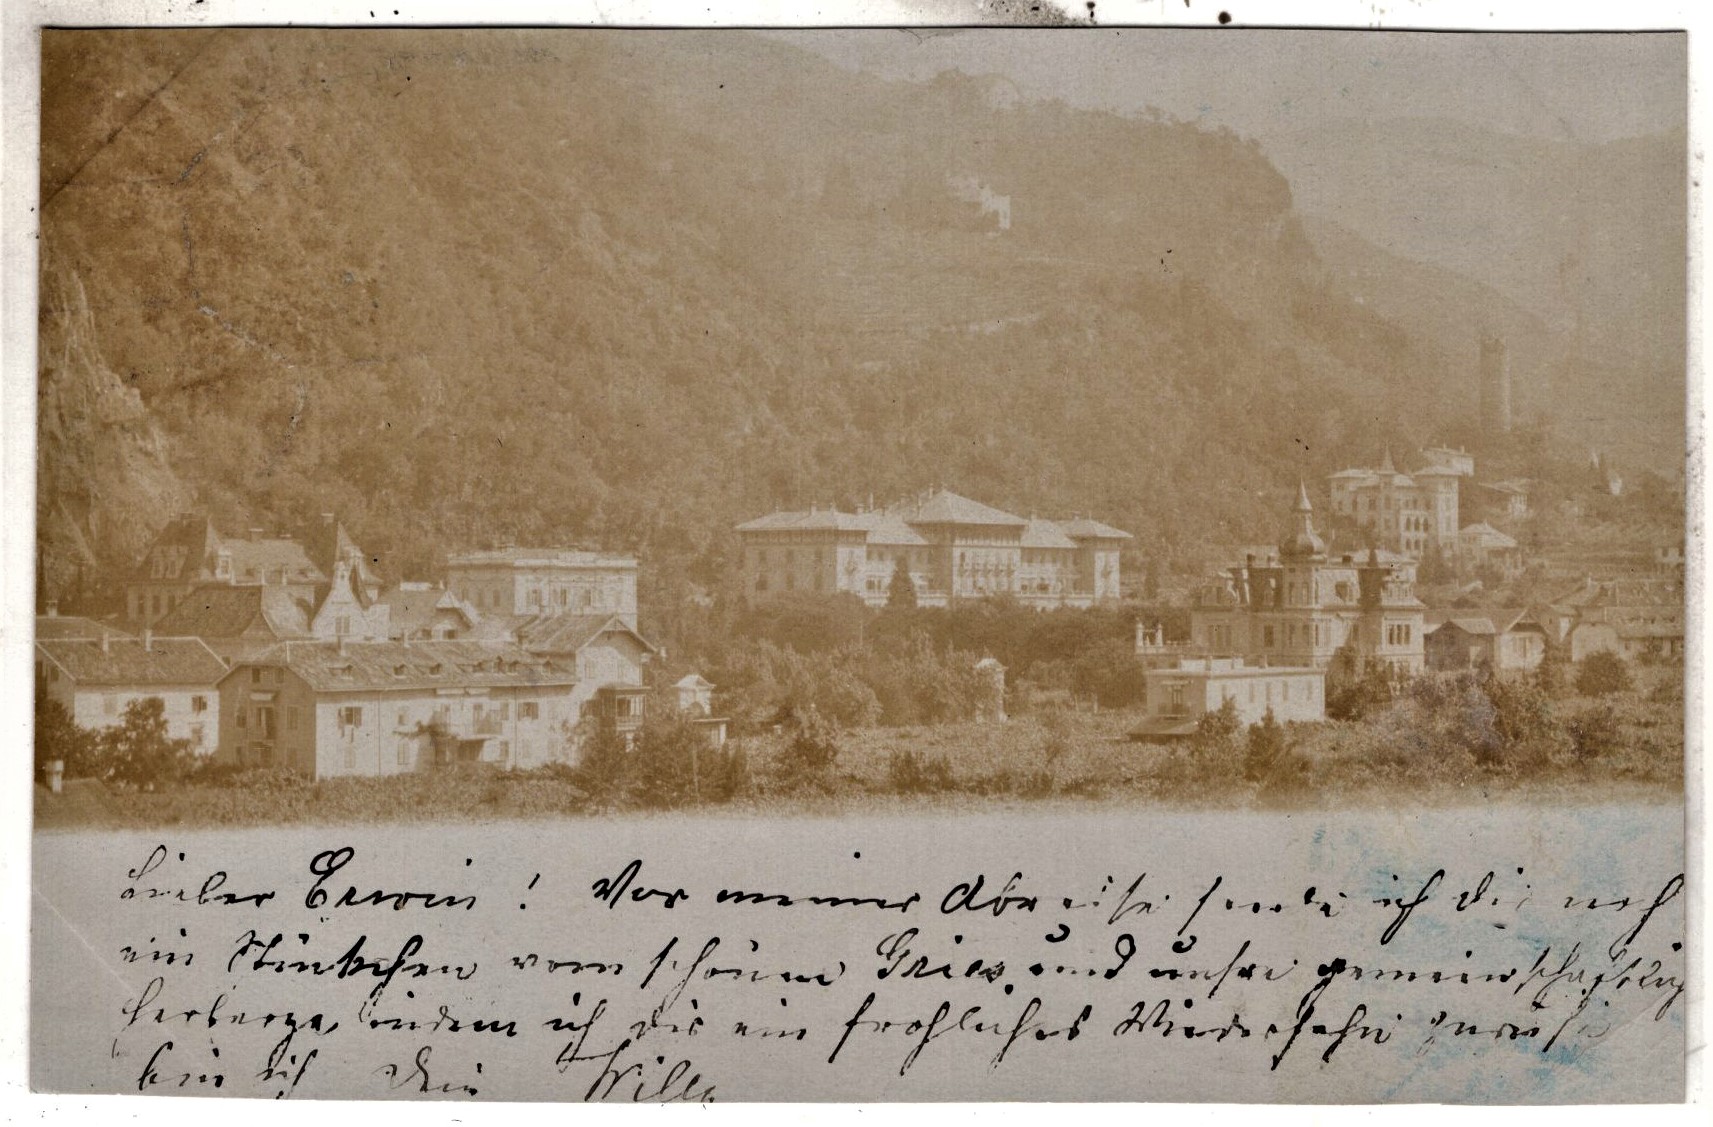 Lieber Erwin! Vor meiner Abreise sende ich dir noch
ein Stückchen vom schönen Gries, und unsre gemeinschaftlich
herberge, indem ich dir ein frohliches Wiedersehn zurufe
bin ich Dein Willy